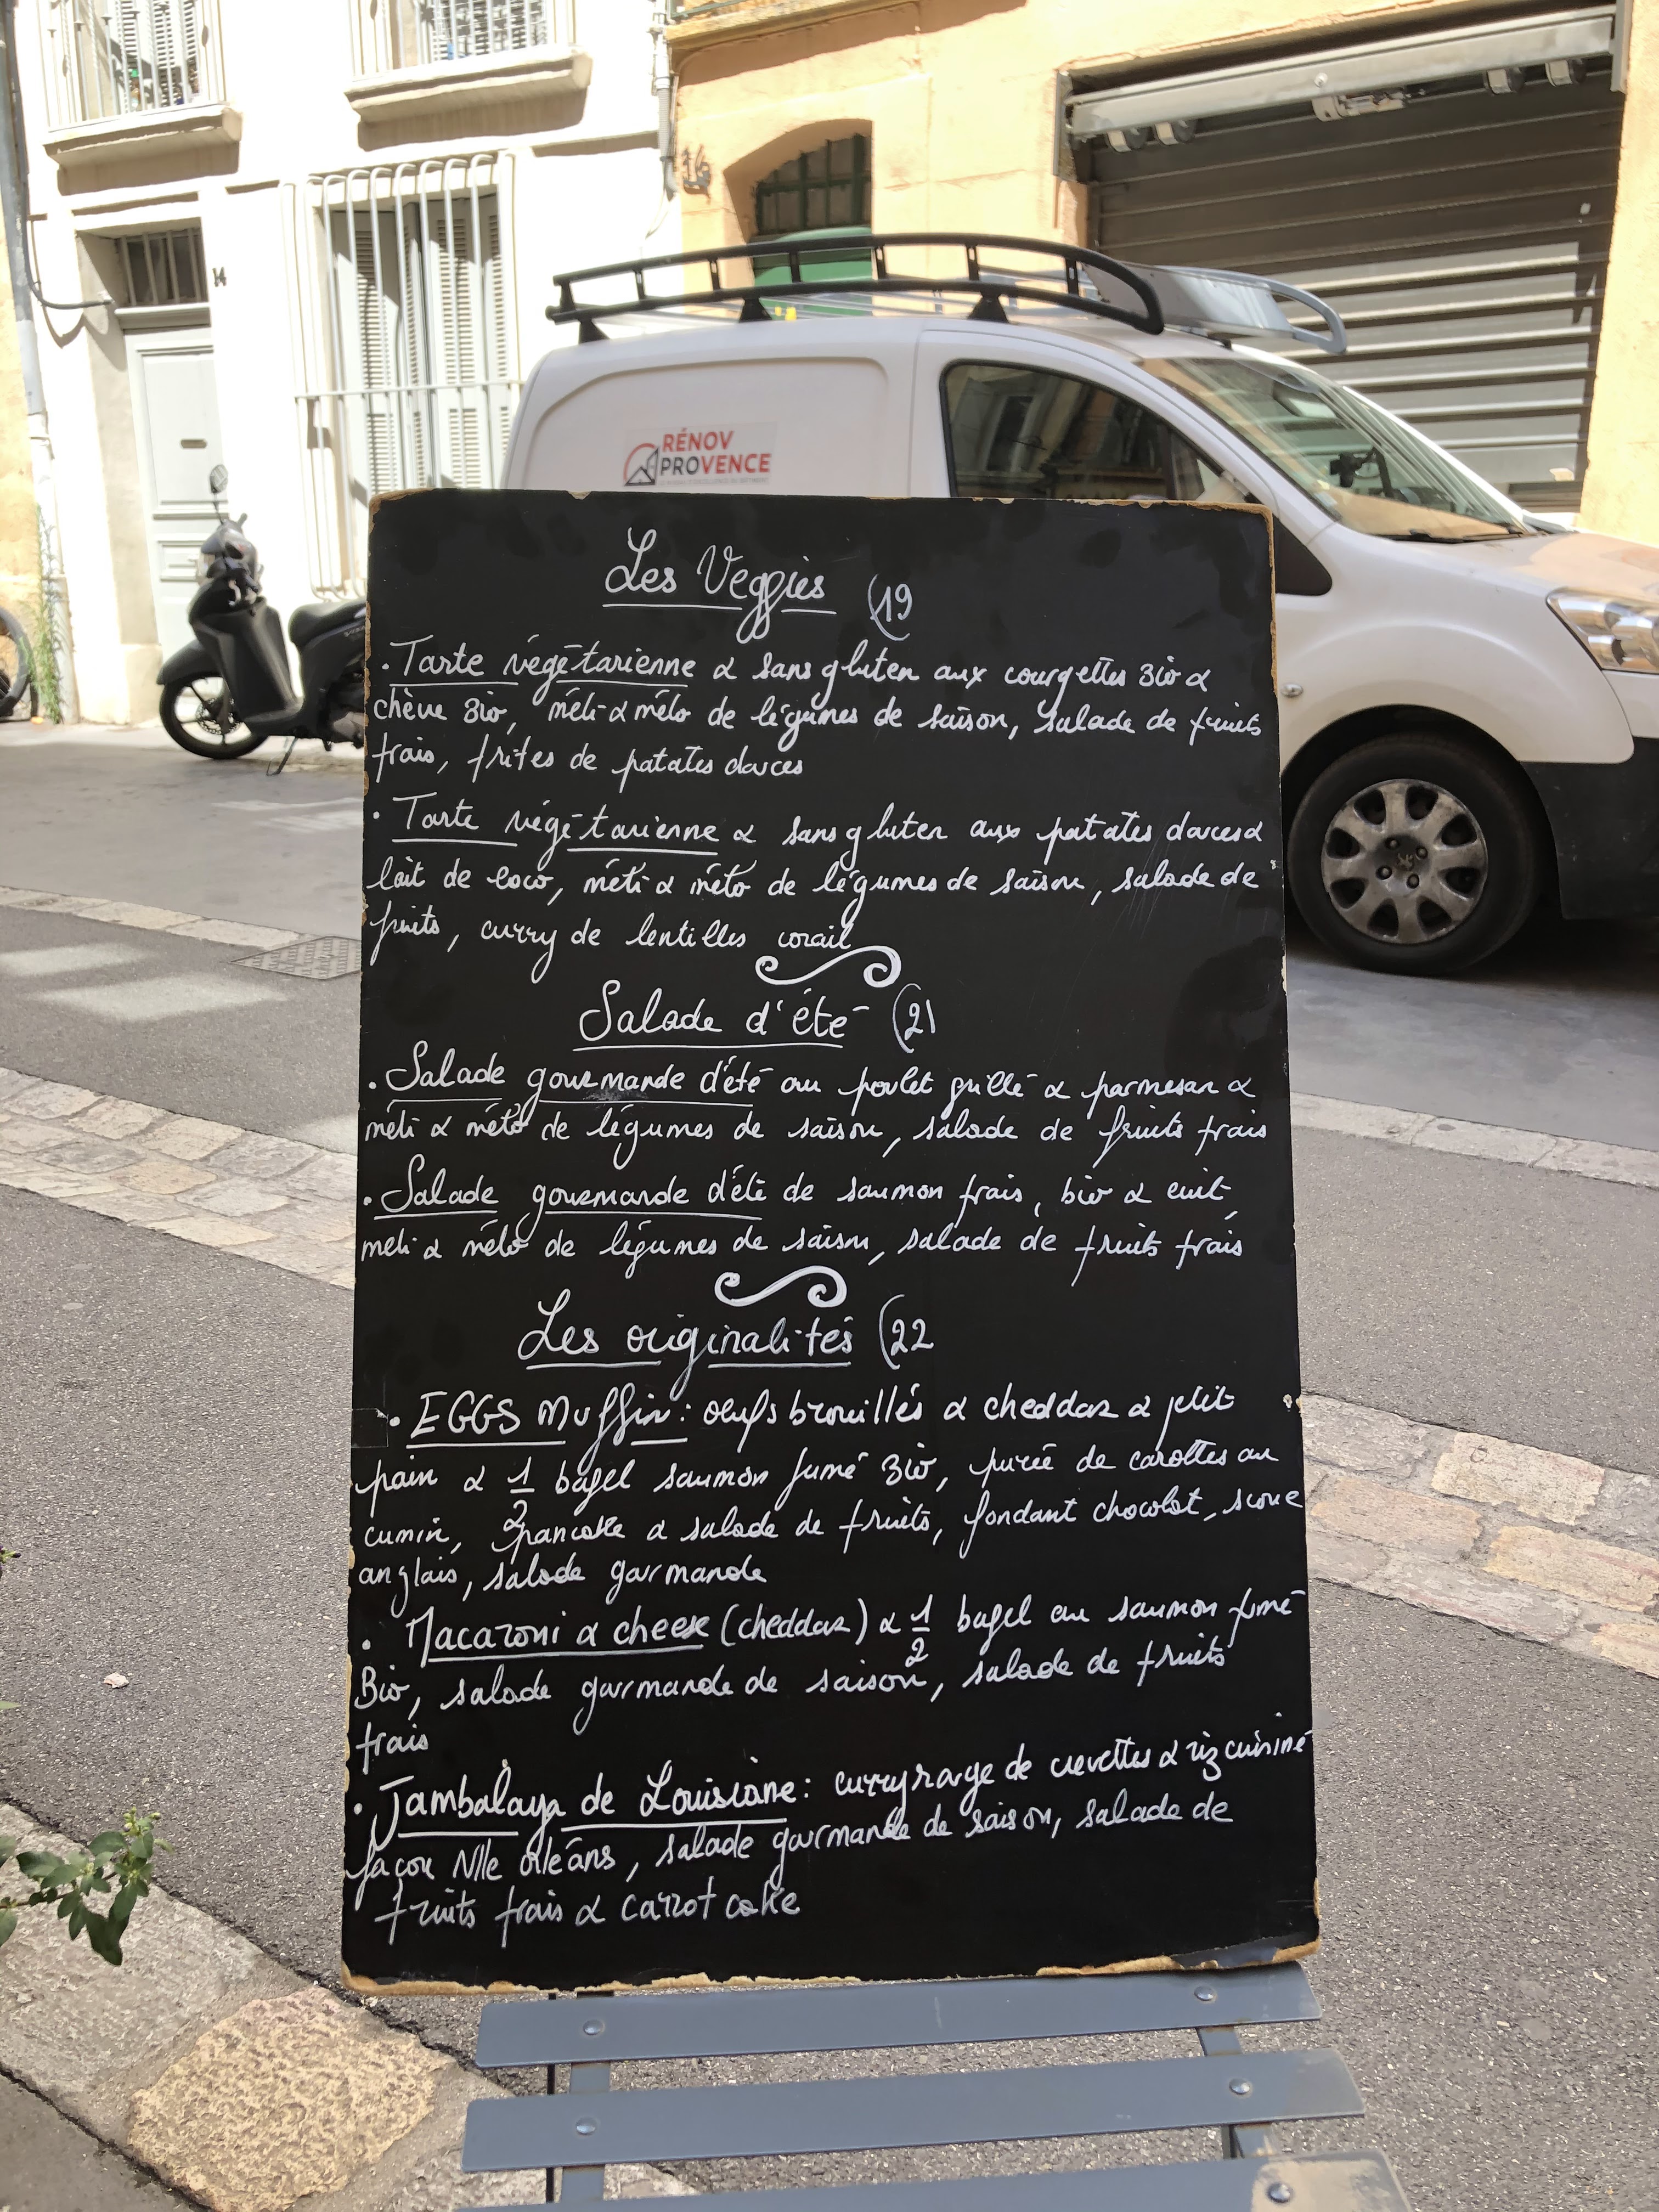 14
16
RÉNOV
PROVENCE
Les Veggies (19
· Tarte végétarienne & sans gluten aux courgettes Bio &
chèvre Bio, méli & mélo de légumes de saison, salade de fruits
frais, frites de patates douces
· Tarte végétarienne & sans gluten aux patates douces &
lait de coco, méli & mélo de légumes de saison, salade de
fruits, curry de lentilles corail
Salade d'été (21
· Salade gourmande d'été au poulet grillé & parmesan &
méli & mélo de légumes de saison, salade de fruits frais
· Salade gourmande d'été de saumon frais, bio & cuit,
meli & mélo de légumes de saison, salade de fruits frais
Les originalités (22
· EGGS Muffin : oeufs brouillés & cheddar & petit
pain & 1/2 bagel saumon fumé Bio, purée de carottes au
cumin, pancake & salade de fruits, fondant chocolat, scone
anglais, salade gourmande
· Macaroni & cheese (cheddar) & 1/2 bagel au saumon fumé
Bio, salade gourmande de saison, salade de fruits
frais
· Jambalaya de Louisiane : curry rouge de crevettes & riz cuisiné
façon Nlle Orléans, salade gourmande de saison, salade de
fruits frais & carrot cake